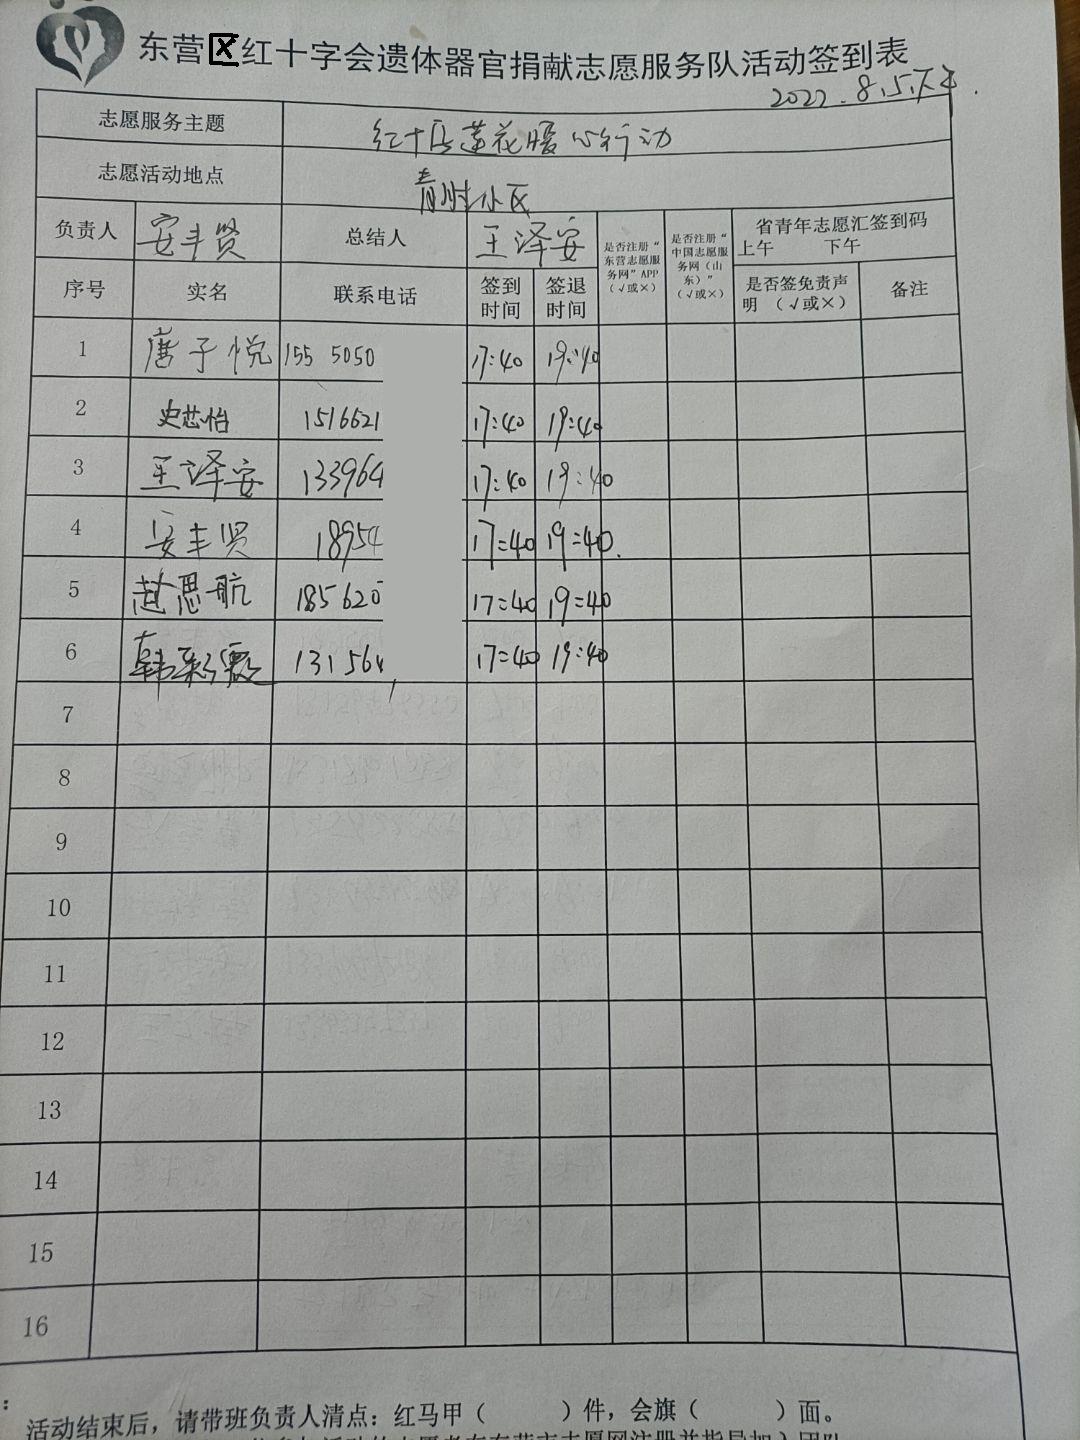 东营区红十字会遗体器官捐献志愿服务队活动签到表
2022.8.5.下午.
志愿服务主题 红十字莲花暖心行动
志愿活动地点 青胜小区
负责人 安丰贤 总结人 王泽安 是否注册“东营志愿服务网”APP（√或×） 是否注册“中国志愿服务网（山东）”（√或×） 省青年志愿汇签到码
上午 下午
序号 实名 联系电话 签到时间 签退时间 是否签免责声明（√或×） 备注
1 唐子悦 155 5050 17:40 19:40
2 史芯怡 1516621 17:40 19:40
3 王泽安 133964 17:40 19:40
4 安丰贤 18954 17:40 19:40.
5 赵思航 185620 17:40 19:40
6 韩 131564 17:40 19:40
7
8
9
10
11
12
13
14
15
16
：
活动结束后，请带班负责人清点：红马甲（ ）件，会旗（ ）面。